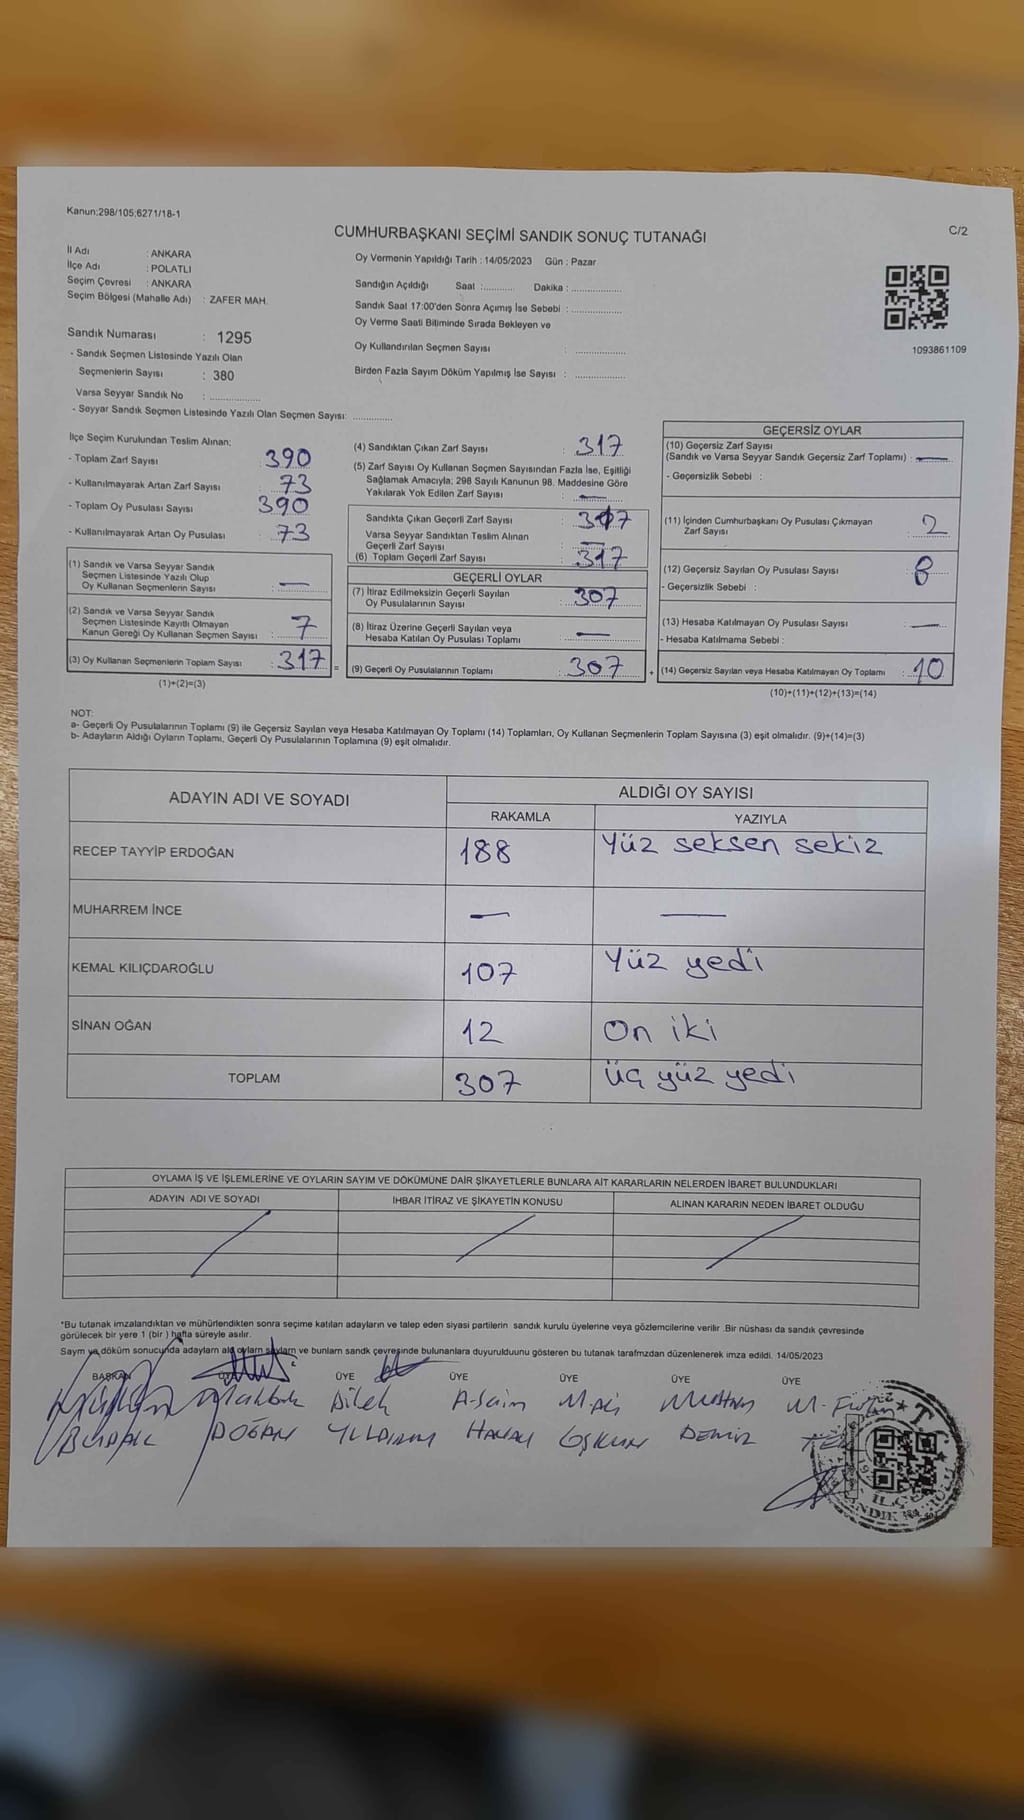 Kanun:298/105;6271/18-1
CUMHURBAŞKANI SEÇİMİ SANDIK SONUÇ TUTANAĞI
C/2
İl Adı : ANKARA
İlçe Adı : POLATLI
Seçim Çevresi : ANKARA
Seçim Bölgesi (Mahalle Adı) : ZAFER MAH.
Sandık Numarası : 1295
- Sandık Seçmen Listesinde Yazılı Olan
Seçmenlerin Sayısı : 380
Varsa Seyyar Sandık No : ..............
- Seyyar Sandık Seçmen Listesinde Yazılı Olan Seçmen Sayısı: ............
Oy Vermenin Yapıldığı Tarih : 14/05/2023 Gün : Pazar
Sandığın Açıldığı Saat :.......... Dakika : ................
Sandık Saat 17:00'den Sonra Açımış İse Sebebi : ................
Oy Verme Saati Bitiminde Sırada Bekleyen ve
Oy Kullandırılan Seçmen Sayısı : ................
Birden Fazla Sayım Döküm Yapılmış İse Sayısı : ................
1093861109
İlçe Seçim Kurulundan Teslim Alınan;
- Toplam Zarf Sayısı 390
- Kullanılmayarak Artan Zarf Sayısı : 73
- Toplam Oy Pusulası Sayısı 390
- Kullanılmayarak Artan Oy Pusulası : 73
(1) Sandık ve Varsa Seyyar Sandık
Seçmen Listesinde Yazılı Olup
Oy Kullanan Seçmenlerin Sayısı : —
(2) Sandık ve Varsa Seyyar Sandık
Seçmen Listesinde Kayıtlı Olmayan
Kanun Gereği Oy Kullanan Seçmen Sayısı : 7
(3) Oy Kullanan Seçmenlerin Toplam Sayısı : 317 =
(1)+(2)=(3)
(4) Sandıktan Çıkan Zarf Sayısı : 317
(5) Zarf Sayısı Oy Kullanan Seçmen Sayısından Fazla İse, Eşitliği
Sağlamak Amacıyla; 298 Sayılı Kanunun 98. Maddesine Göre
Yakılarak Yok Edilen Zarf Sayısı : —
Sandıkta Çıkan Geçerli Zarf Sayısı : 317
Varsa Seyyar Sandıktan Teslim Alınan
Geçerli Zarf Sayısı : —
(6) Toplam Geçerli Zarf Sayısı : 317
GEÇERLİ OYLAR
(7) İtiraz Edilmeksizin Geçerli Sayılan
Oy Pusulalarının Sayısı : 307
(8) İtiraz Üzerine Geçerli Sayılan veya
Hesaba Katılan Oy Pusulası Toplamı : —
(9) Geçerli Oy Pusulalarının Toplamı : 307 +
GEÇERSİZ OYLAR
(10) Geçersiz Zarf Sayısı
(Sandık ve Varsa Seyyar Sandık Geçersiz Zarf Toplamı) : —
- Geçersizlik Sebebi :
(11) İçinden Cumhurbaşkanı Oy Pusulası Çıkmayan
Zarf Sayısı : 2
(12) Geçersiz Sayılan Oy Pusulası Sayısı : 8
- Geçersizlik Sebebi :
(13) Hesaba Katılmayan Oy Pusulası Sayısı : —
- Hesaba Katılmama Sebebi :
(14) Geçersiz Sayılan veya Hesaba Katılmayan Oy Toplamı : 10
(10)+(11)+(12)+(13)=(14)
NOT:
a- Geçerli Oy Pusulalarının Toplamı (9) ile Geçersiz Sayılan veya Hesaba Katılmayan Oy Toplamı (14) Toplamları, Oy Kullanan Seçmenlerin Toplam Sayısına (3) eşit olmalıdır. (9)+(14)=(3)
b- Adayların Aldığı Oyların Toplamı, Geçerli Oy Pusulalarının Toplamına (9) eşit olmalıdır.
ADAYIN ADI VE SOYADI ALDIĞI OY SAYISI
RAKAMLA YAZIYLA
RECEP TAYYİP ERDOĞAN 188 Yüz seksen sekiz
MUHARREM İNCE — —
KEMAL KILIÇDAROĞLU 107 Yüz yedi
SİNAN OĞAN 12 On iki
TOPLAM 307 üç yüz yedi
OYLAMA İŞ VE İŞLEMLERİNE VE OYLARIN SAYIM VE DÖKÜMÜNE DAİR ŞİKAYETLERLE BUNLARA AİT KARARLARIN NELERDEN İBARET BULUNDUKLARI
ADAYIN ADI VE SOYADI İHBAR İTİRAZ VE ŞİKAYETİN KONUSU ALINAN KARARIN NEDEN İBARET OLDUĞU
*Bu tutanak imzalandıktan ve mühürlendikten sonra seçime katılan adayların ve talep eden siyasi partilerin sandık kurulu üyelerine veya gözlemcilerine verilir .Bir nüshası da sandık çevresinde
görülecek bir yere 1 (bir ) hafta süreyle asılır.
Sayım ve döküm sonucunda adayların ald oyların sayları ve bunların sandk çevresinde bulunanlara duyurulduunu gösteren bu tutanak tarafmzdan düzenlenerek imza edildi. 14/05/2023
BAŞKAN ÜYE ÜYE ÜYE ÜYE ÜYE ÜYE
Dilek
DOĞAN YILDIRIM DEMİR